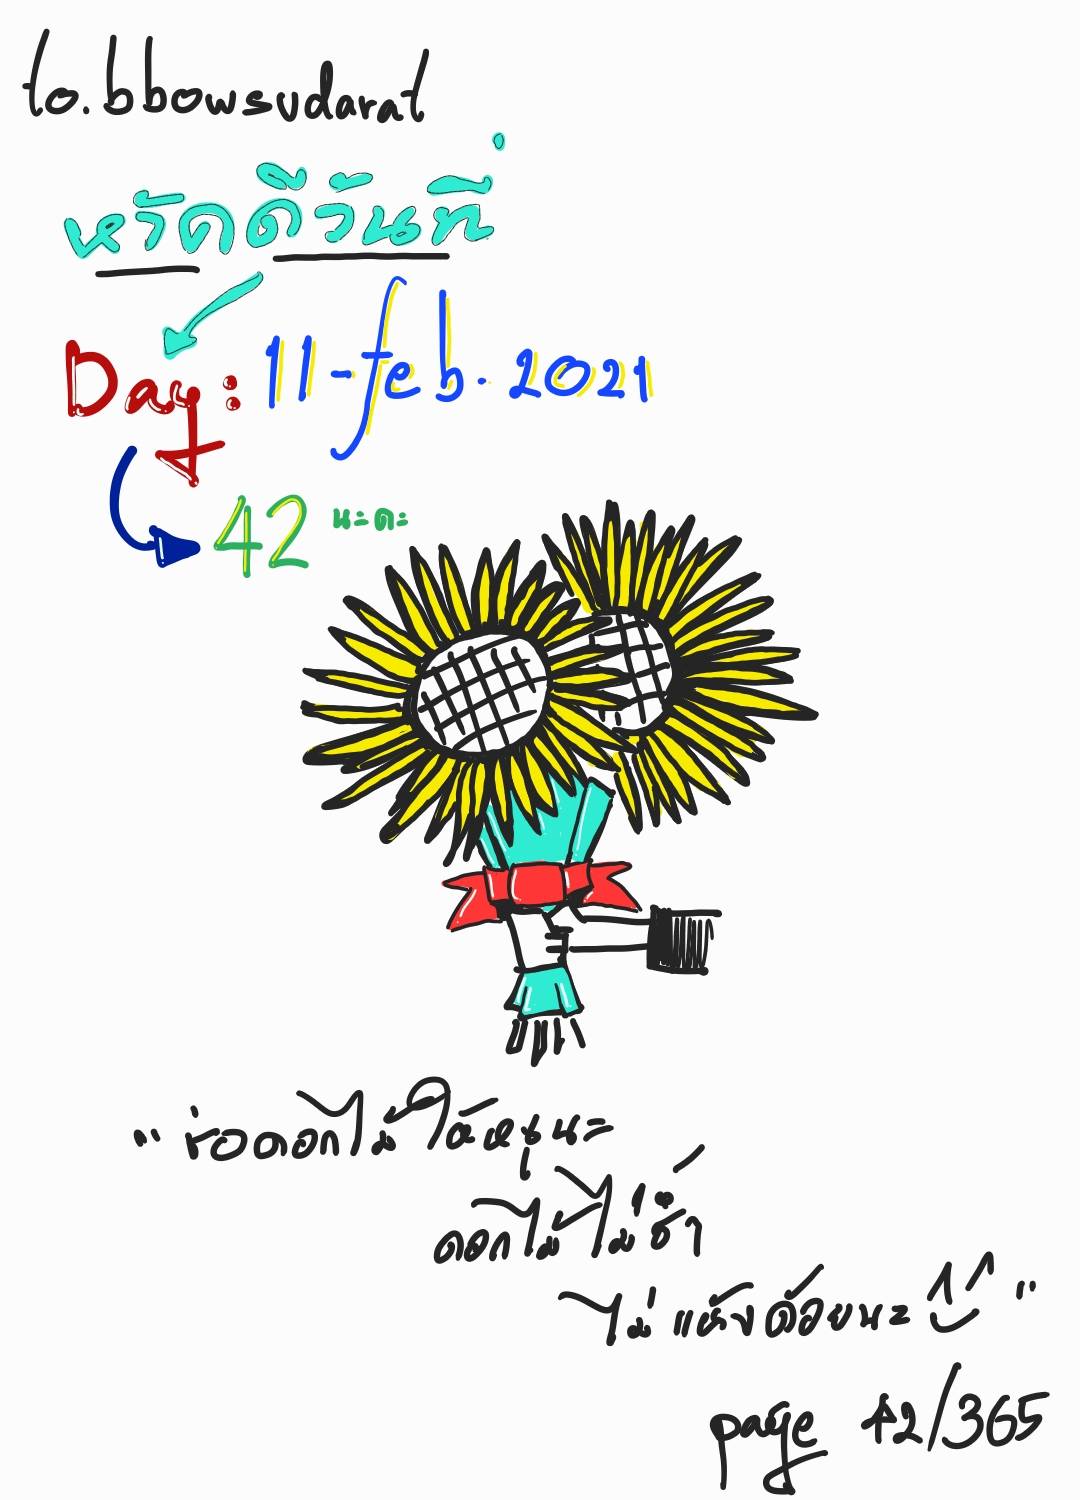 to.bbowsudarat
หวัดดีวันที่
Day: 11-feb.2021
42 นะคะ
"ช่อดอกไม้ให้หนูนะ
ดอกไม้ไม่ช้ำ
ไม่แห้งด้วยนะ"
page 42/365